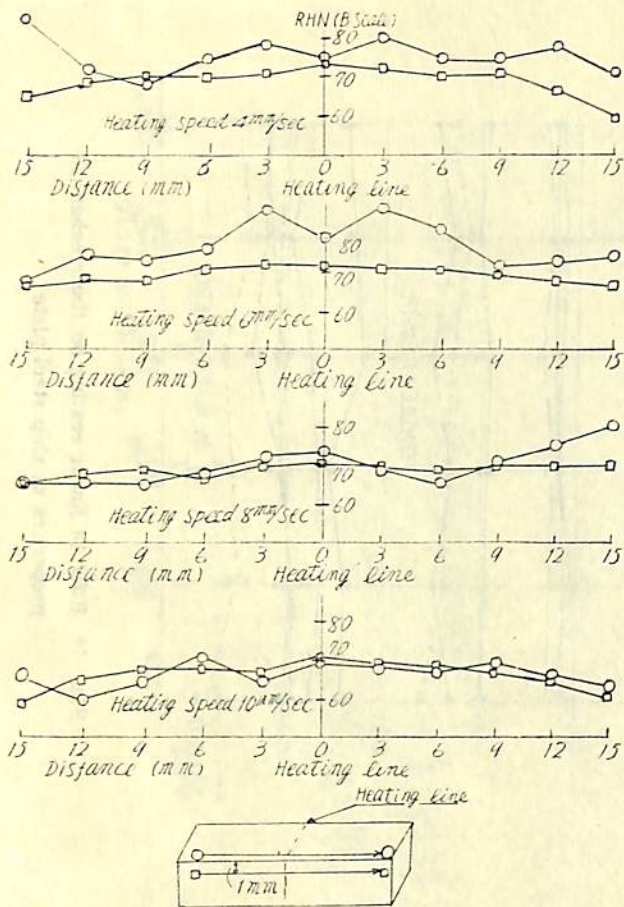 RHN (B Scale)
80
70
60
Heating speed 4mm/sec
15 12 9 6 3 0 3 6 9 12 15
Distance (mm) Heating line
80
70
60
Heating speed 6mm/sec
15 12 9 6 3 0 3 6 9 12 15
Distance (mm) Heating line
80
70
60
Heating speed 8mm/sec
15 12 9 6 3 0 3 6 9 12 15
Distance (mm) Heating line
80
70
60
Heating speed 10mm/sec
15 12 9 6 3 0 3 6 9 12 15
Distance (mm) Heating line
Heating line
1mm